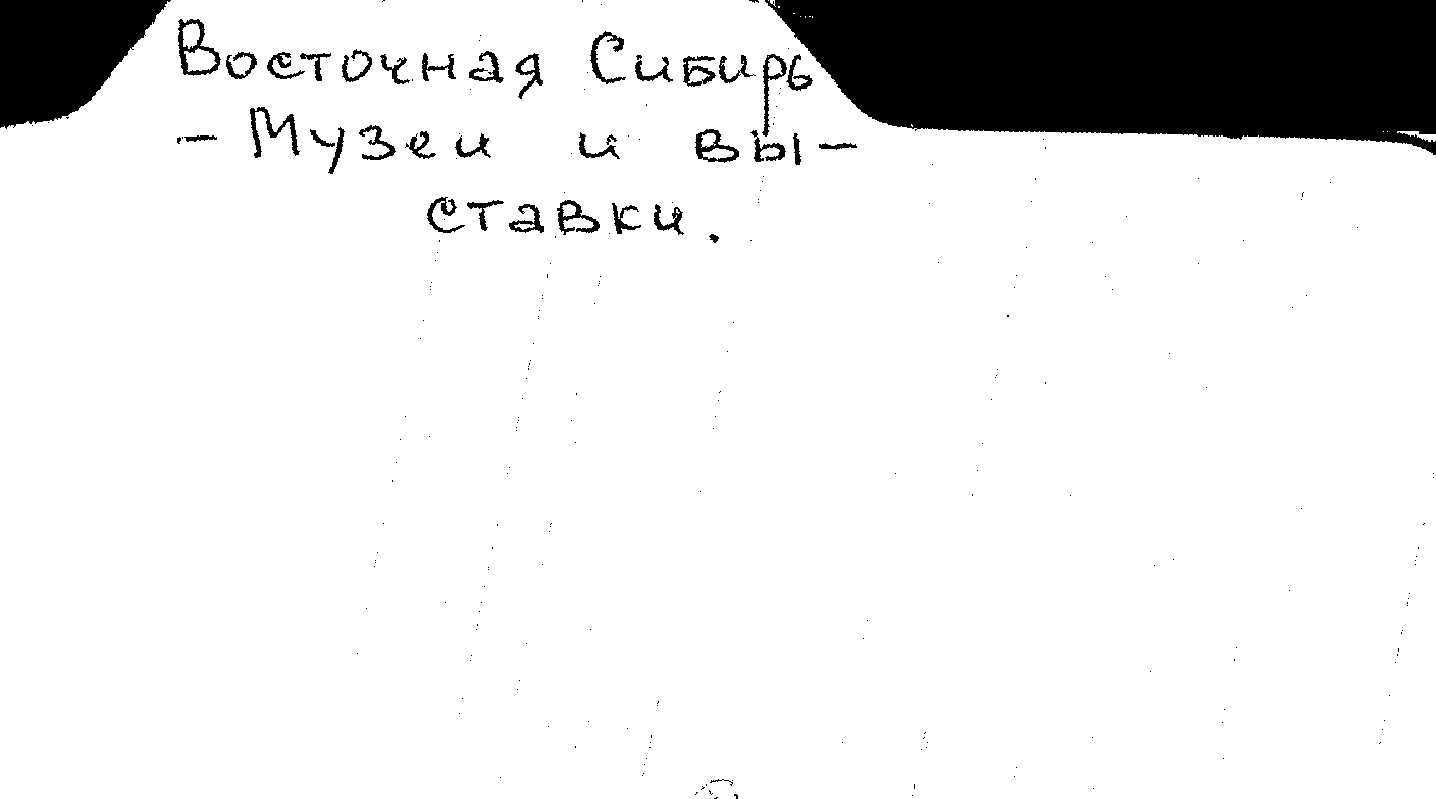 Восточная Сибирь
- Музеи и вы-
ставки.